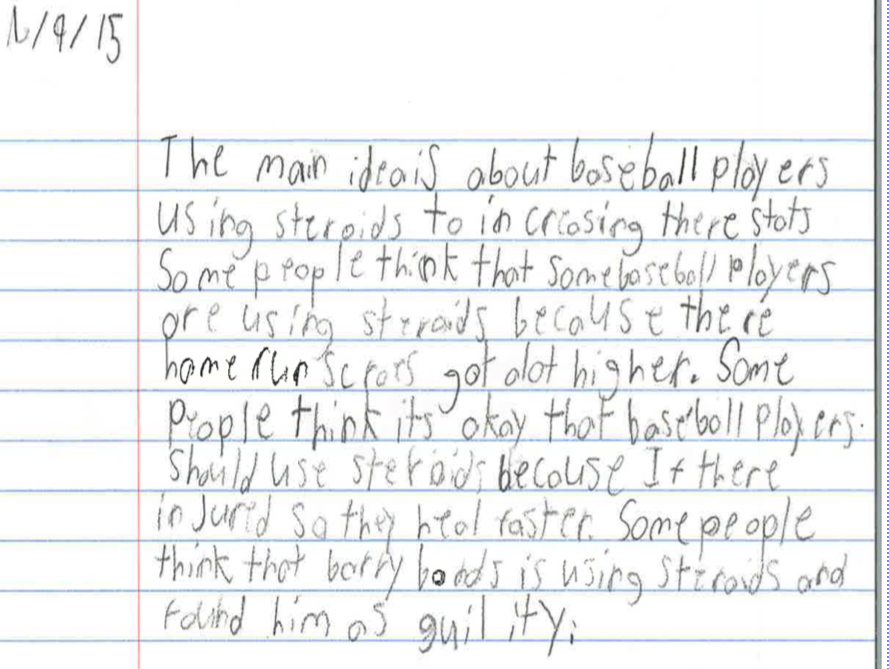 1/9/15
The main idea is about baseball players
using steroids to in creasing there stats
Some people think that some baseball players
are using steroids because there
home run scrors got alot higher. Some
People think its okay that baseball players.
should use steroids because If there
in Jured so they heal faster. Some people
think that barry bonds is using steroids and
found him as guil ity.